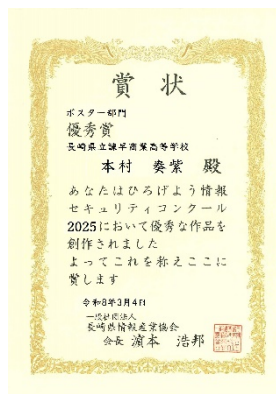 賞状
ポスター部門
優秀賞
長崎県立諫早商業高等学校
本村 奏紫 殿
あなたはひろげよう情報
セキュリティコンクール
2025において優秀な作品を
創作されました
よってこれを称えここに
賞します
令和8年3月4日
一般社団法人
長崎県情報産業協会
会長 濵本 浩邦